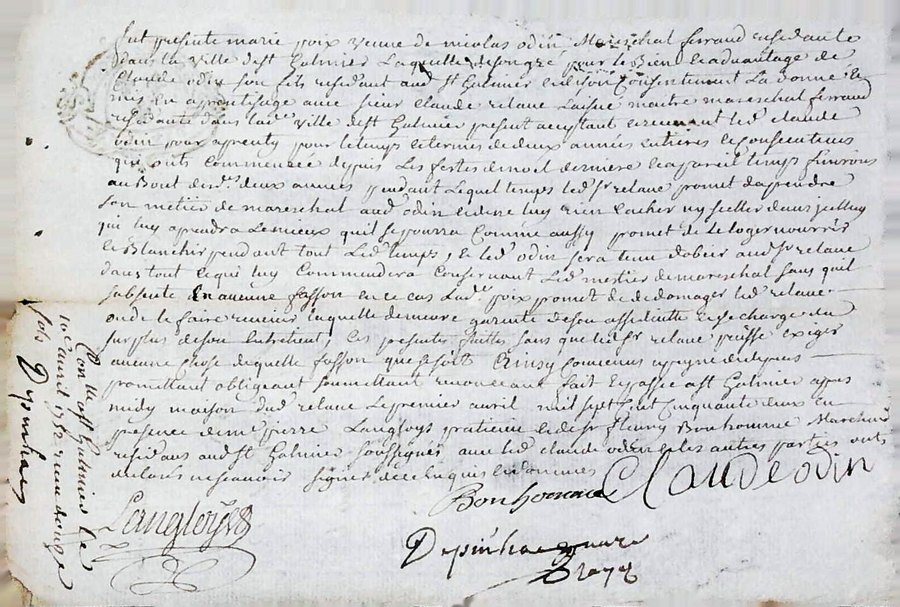 fut presente marie poix veuve de nicolas odin Mareschal ferrand residante
dans la ville de st Galmier Laquelle de son gré pour le Bien et advantage de
Claude odin son fils residant aud st Galmier et de son Consentement La donné et
mis en apprentissage avec sieur claude relave Laisné maitre mareschal ferrand
residante dans lad. ville de st Galmier present acceptant et retenant led. claude
odin pour aprenty pour le temps et termes de deux années entieres et consecutives
qui onts commencée depuis Les festes de noel derniere et a pareil temps finirons
au Bout desd. deux années pendant Lequel temps led. sr relave promet daprendre
son métier de mareschal aud. odin et de ne luy rien cacher ny seller dans jcelluy
qui luy aprendra Le mieux quil se pourra Comme aussy promet de le loger nourrir
et Blanchir pendant tout Led. temps, et led. odin sera tenu dobeir aud. sr relave
dans tout ce qui luy Commendera Consernant Led. mestier de mareschal sans quil
subsente En aucune fasson en ce cas Lad. poix promet de dedomager led. relave
ou de le faire revenir laquelle demeure garante de son assiduitté et se charge du
surplus de son Entretient, ces presentes faittes sans que led. sr relave puisse exiger
aucune chose de quelle fasson que se soits Eainsy Convenus a peyne de tous despens
promettant obligeant soumettant renonceant fait et passé a st Galmier apres
midy maison dud. relave Le premier avril mil sept cent Cinquante deux en
presence de me pierre Langloys praticien et de sr fleury Bonhomme Marchand
residans aud. st Galmier soussignés avec led. claude odin et les autres parties onts
declarés ne scavoir signer de ce enquis et sommés
Bonhomme Claude odin
Langloys
Depinhac
Con lle a st Galmier le
10 avril 1752 reçu douze
sols Depinhac